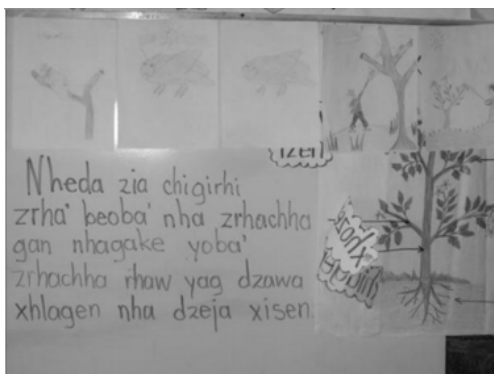 Nheda zia chigirhi
zrha' beoba' nha zrhachha
gan nhagake yoba'
zrhachha rhaw yag dzawa
xhlagen nha dzeja xisen.